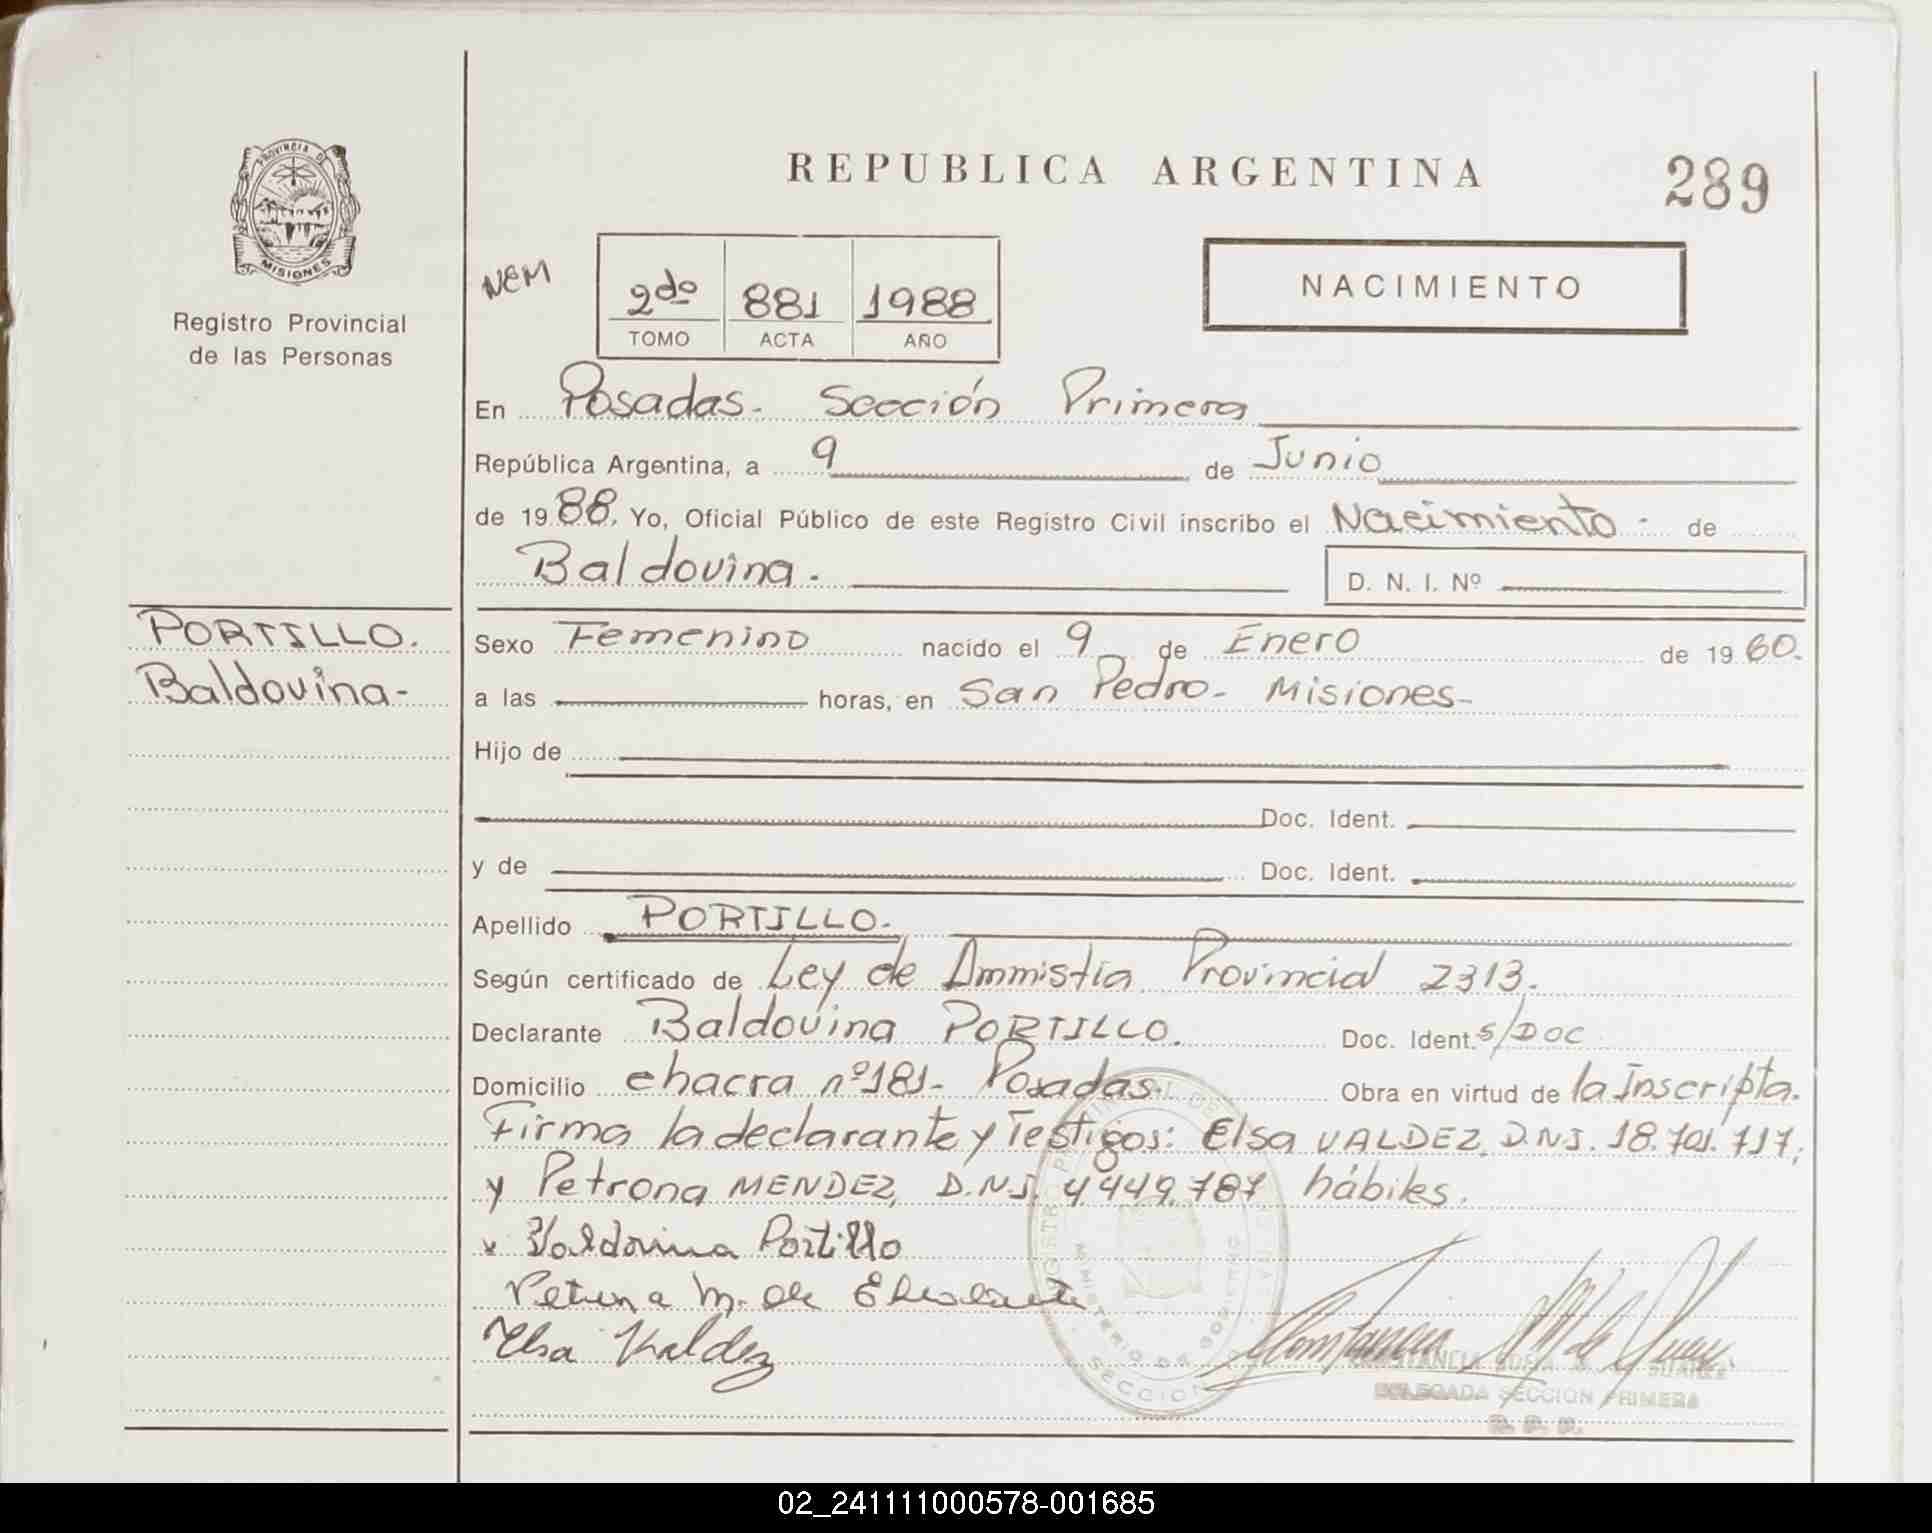 REPUBLICA ARGENTINA
289
PROVINCIA DE
MISIONES
Registro Provincial
de las Personas
NEM
2do 881 1988
TOMO ACTA AÑO
NACIMIENTO
En Posadas. Sección Primera
República Argentina, a 9 de Junio
de 1988. Yo, Oficial Público de este Registro Civil inscribo el Nacimiento - de
Baldovina.
D. N. I. Nº
PORTILLO.
Baldovina-
Sexo Femenino nacido el 9 de Enero de 1960.
a las horas, en San Pedro- Misiones-
Hijo de
Doc. Ident.
y de Doc. Ident.
Apellido PORTILLO.
Según certificado de Ley de Ammistia Provincial 2313.
Declarante Baldovina PORTILLO. Doc. Ident. S/DOC
Domicilio chacra nº181- Posadas. Obra en virtud de la Inscripta.
Firma la declarante y Testigos: Elsa VALDEZ, D.N.I. 18.701.717;
y Petrona MENDEZ, D.N.I. 4.449.787 hábiles.
x Valdovina Portillo
Petrona M. de
Elsa Valdez
MINISTERIO DE GOBIERNO
SECCION
CONSTANCIA SUAREZ
DELEGADA SECCION PRIMERA
R. P. P.
02_241111000578-001685